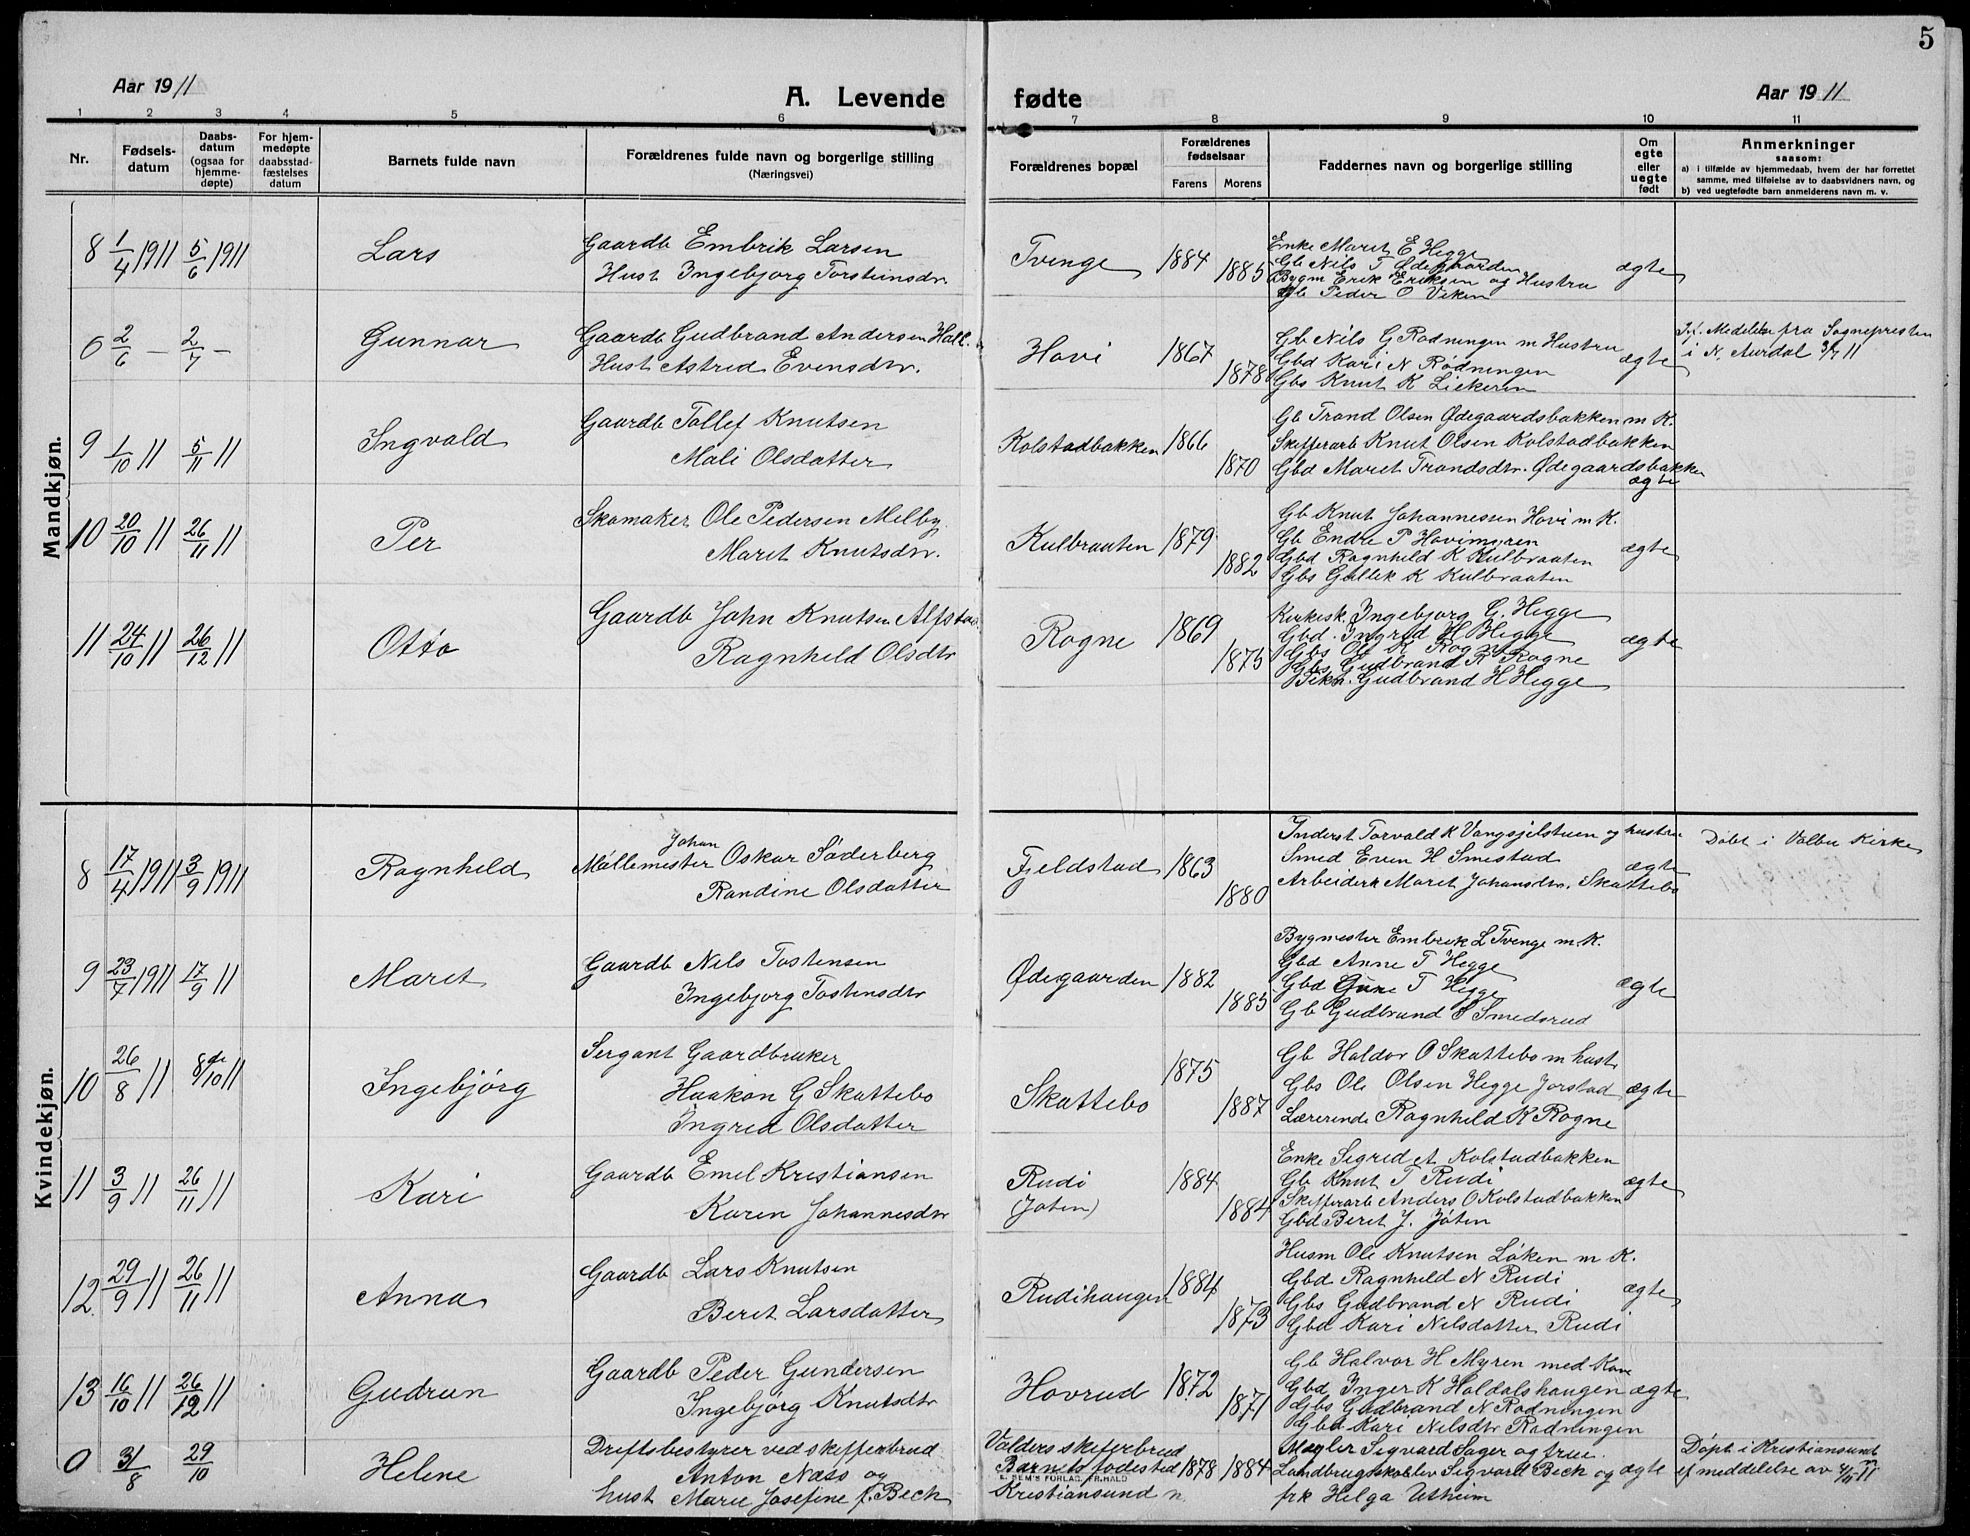 5
Aar 1911 A. Levende fødte Aar 1911
1 2 3 4 5 6 7 8 9 10 11
Nr. Fødselsdatum Daabsdatum (ogsaa for hjemmedøpte) For hjemmedøpte daabsstadfæstelses datum Barnets fulde navn Forældrenes fulde navn og borgerlige stilling (Næringsvei) Forældrenes bopæl Forældrenes fødselsaar Farens Morens Faddernes navn og borgerlige stilling Om egte eller uegte født Anmerkninger saasom:
a) i tilfælde av hjemmedaab, hvem der har forrettet samme, med tilføielse av to daabsvidners navn, og
b) ved uegtefødte barn anmelderens navn m. v.
Mandkjøn.
8 1/4 1911 5/6 1911 Lars
Gaardb Embrik Larsen
Hust Ingebjørg Torsteinsdr.
Tvenge 1884 1885
Enke Marit E Hegge
Gb Nils T Ødegaarden
Bygm Erik Eriksen og Hustru
Gb Peder O Viken
ægte
0 2/6 — 2/7 — Gunnar
Gaardb Gudbrand Andersen Hall.
Hust Astrid Evensdtr.
Hovi 1867 1878
Gb Nils G Rødningen m Hustru
Gbd Kari N Rødningen
Gbs Knut K Liekeren
ægte
Jf. Medelelse fra Sognepresten
i N. Aurdal 3/7 11
9 1/10 11 5/11 11 Ingvald
Gaardb Tollef Knutsen
Mali Olsdatter
Kolstadbakken 1866 1870
Gb Trond Olsen Ødegaardsbakken m K.
Skifferarb Knut Olsen Kolstadbakken
Gbd Marit Trondsdtr. Ødegaardsbakken
ægte
10 20/10 11 26/11 11 Per
Skomaker Ole Pedersen Melby
Marit Knutsdtr.
Kulbraaten 1879 1882
Gb Knut Johannessen Hovi m K.
Gb Endre P Hovimoren
Gbd Ragnhild K Kulbraaten
Gbs Gullik K Kulbraaten
ægte
11 24/10 11 26/12 11 Otto
Gaardb John Knutsen Alfstad
Ragnhild Olsdtr
Rogne 1869 1875
Kirkesk. Ingebjørg G. Hegge
Gbd. Ingrid H Hegge
Gbs Ole K Rogne
Gbs Gudbrand K Rogne
Gudbrand H Hegge
ægte
Kvindekjøn.
8 17/4 1911 3/9 1911 Ragnhild
Johan
Møllemester Oskar Søderberg
Randine Olsdatter
Fjeldstad 1863 1880
Inderst Torvald K Vangsjelstuen og hustru
Smed Even H Smestad
Arbeidersk Marit Johansdtr. Skattebo
ægte
Døbt i Volbu Kirke
9 23/7 1911 17/9 11 Marit
Gaardb Nils Tostensen
Ingebjørg Tostensdtr
Ødegaarden 1882 1885
Bygmester Embrik L Tvenge m K.
Gbd Anne T Hegge
Gbd Gune T Hegge
Gb Gudbrand S Smedsrud
ægte
10 26/8 11 8de/10 11 Ingebjørg
Sergant Gaardbruker
Haakon G Skattebo
Ingrid Olsdatter
Skattebo 1875 1887
Gb Haldor O Skattebo m hustr
Gbs Ole Olsen Hegge Jorstad
Lærerinde Ragnhild K Rogne
ægte
11 3/9 11 26/11 11 Kari
Gaardb Emil Kristiansen
Karen Johannesdtr
Rudi
(Joten) 1884 1884
Enke Sigrid A Kolstadbakken
Gb Knut T Rudi
Skifferarb Anders O Kolstadbakken
Gbd Berit J. Joten
ægte
12. 29/9 11 26/11 11 Anna
Gaardb Lars Knutsen
Berit Larsdatter
Rudihaugen 1884 1873
Husm Ole Knutsen Løken m K.
Gbd Ragnhild N Rudi
Gbs Gudbrand N Rudi
Gbd Kari Nilsdatter Rudi
ægte
13 16/10 11 26/12 11 Gudrun
Gaardb Peder Gundersen
Ingebjørg Knutsdtr
Hovrud 1872 1871
Gb Halvor H Myren med Kone
Gbd Inger K Haldalshaugen
Gbs Gudbrand N Rødningen
Gbd Kari Nilsdtr Rødningen
ægte
0 31/8 29/10 Helene
Driftsbestyrer ved skifferbrud
Anton Næss og
hust Marie Josefine f. Beck
Valders skiferbrud
Barnets fødested
E. SEM'S FORLAG, FR.HALD
Kristiansund n.
1878 1884
Mægler Sigvard Sager og frue.
Landbrugsskoelev Sigvard Beck og
frk Helga Utheim
ægte
Døpt i Kristiansund
if meddelelse av 4/11 11